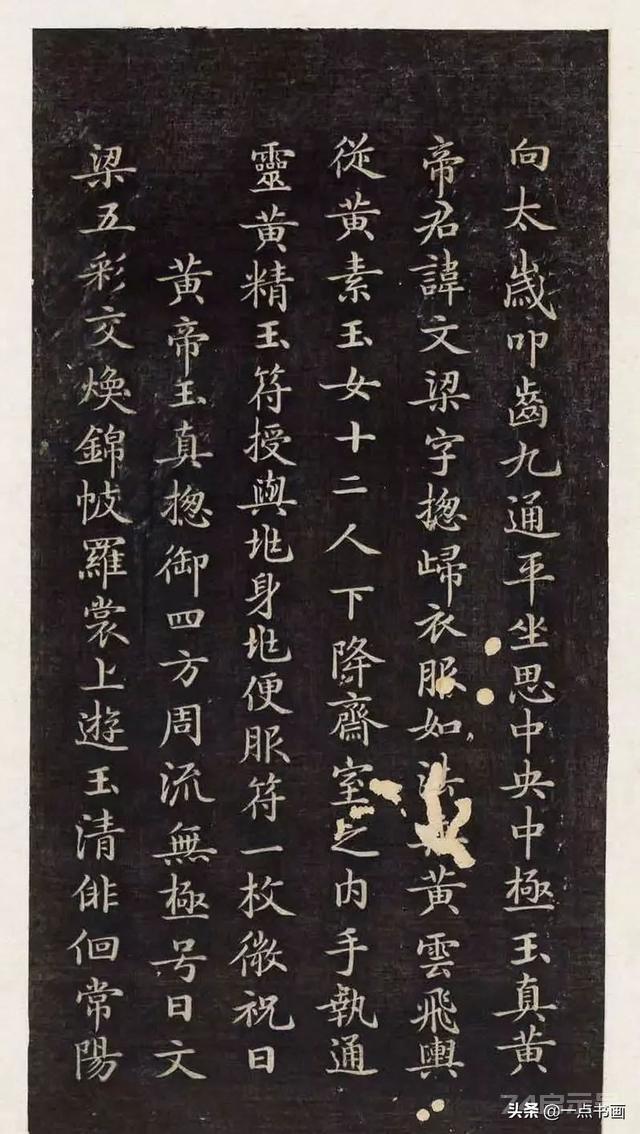 向太歲叩齒九通平坐思中央中極玉真黃
帝君諱文梁字揔歸衣服如法乘黃雲飛輿
從黃素玉女十二人下降齋室之内手執通
靈黃精玉符授與兆身兆便服符一枚微祝曰
黃帝玉真揔御四方周流無極号曰文
梁五彩交煥錦帔羅裳上遊玉清俳佪常陽
头条 @一点书画